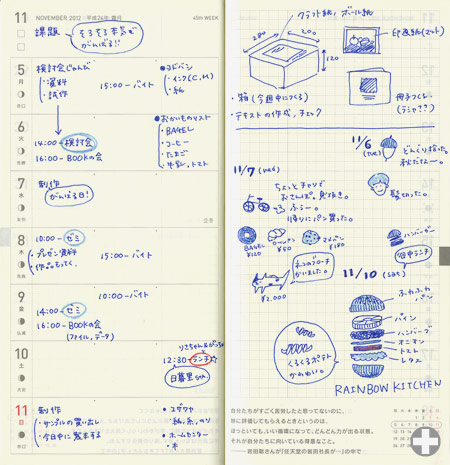 11 NOVEMBER 2012・平成24年 霜月 45th WEEK
課題 そろそろ本気でがんばる!
5
月
検討会じゅんび
・資料
・試作
15:00-バイト
●ヨドバシ
・インク(C,M)
・紙
6
火
14:00-検討会
16:00-BOOKの会
●おかいものリスト
・BAGEL
・コーヒー
・たまご
・牛乳,トマト
7
水
制作
がんばる日!
8
木
10:00-ゼミ
・プレゼン資料
・作品もってく。
15:00-バイト
9
金
10:00-バイト
14:00-ゼミ
16:00-BOOKの会
(ファイル,データ)
10
土
12:30-ランチ☆
日暮里sta.
11
日
制作
・サンプルの買い出し
・今日中に製本する
●ユザワヤ
・紙,糸,のり
●ホームセンター
・木
クラフト紙,ボール紙
280
200
120
印画紙(マット)
・箱(今週中につくる)
・テキストの作成,チェック
冊子つくる
11/6
(tue)
どんぐり拾った。
秋だなー。
11/7 (wed)
ちょっとチャリで
おさんぽ。息抜き。
ふぅー。
帰りにパン買った。
髪切った。
BAGEL
¥120
¥50
¥180
ハンバーガー
@谷中ランチ
ネコのブローチ
かいました。
¥2,000
11/10 (sat)
ふわふわ
パン
パイン
ハンバーグ
オニオン
トマト
レタス
くるくるポテト
かわいい。
RAINBOW KITCHEN
自分たちがすごく苦労したと思ってないのに、
妙に評価してもらえるときというのは、
ほっといても、いい循環になって、どんどん力が出る状態。
それが自分たちに向いている得意なこと。
──岩田聡さんが『任天堂の岩田社長が…』の中で